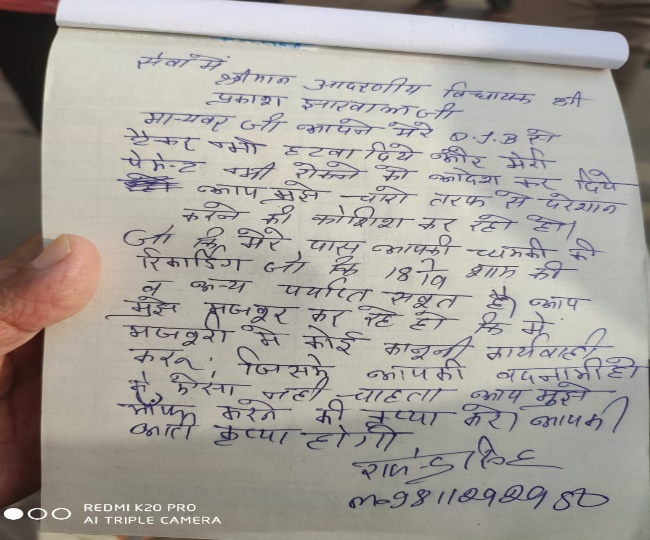 सेवा में
श्रीमान आदरणीय विधायक श्री
प्रकाश झारवाल जी
मान्यवर जी आपने मेरे D.J.B से
टैन्कर भी हटवा दिये और मेरी
पेमेन्ट भी रोकने का आदेश कर दिये
आप मुझे चारो तरफ से परेशान
करने की कोशिश कर रहे हो।
जो कि मेरे पास आपकी धमकी की
रिकार्डिंग जो कि 18/7/19 शाम की
व अन्य पर्याप्त सबूत है। आप
मुझे मजबूर कर रहे हो कि में
मजबूरी मे कोई कानूनी कार्यवाही
करू जिसमे आपकी बदनामी हो
मे ऐसा नही चाहता आप मुझे
माँफ करने की कृप्या करे। आपकी
अति कृप्या होगी
REDMI K20 PRO
AI TRIPLE CAMERA